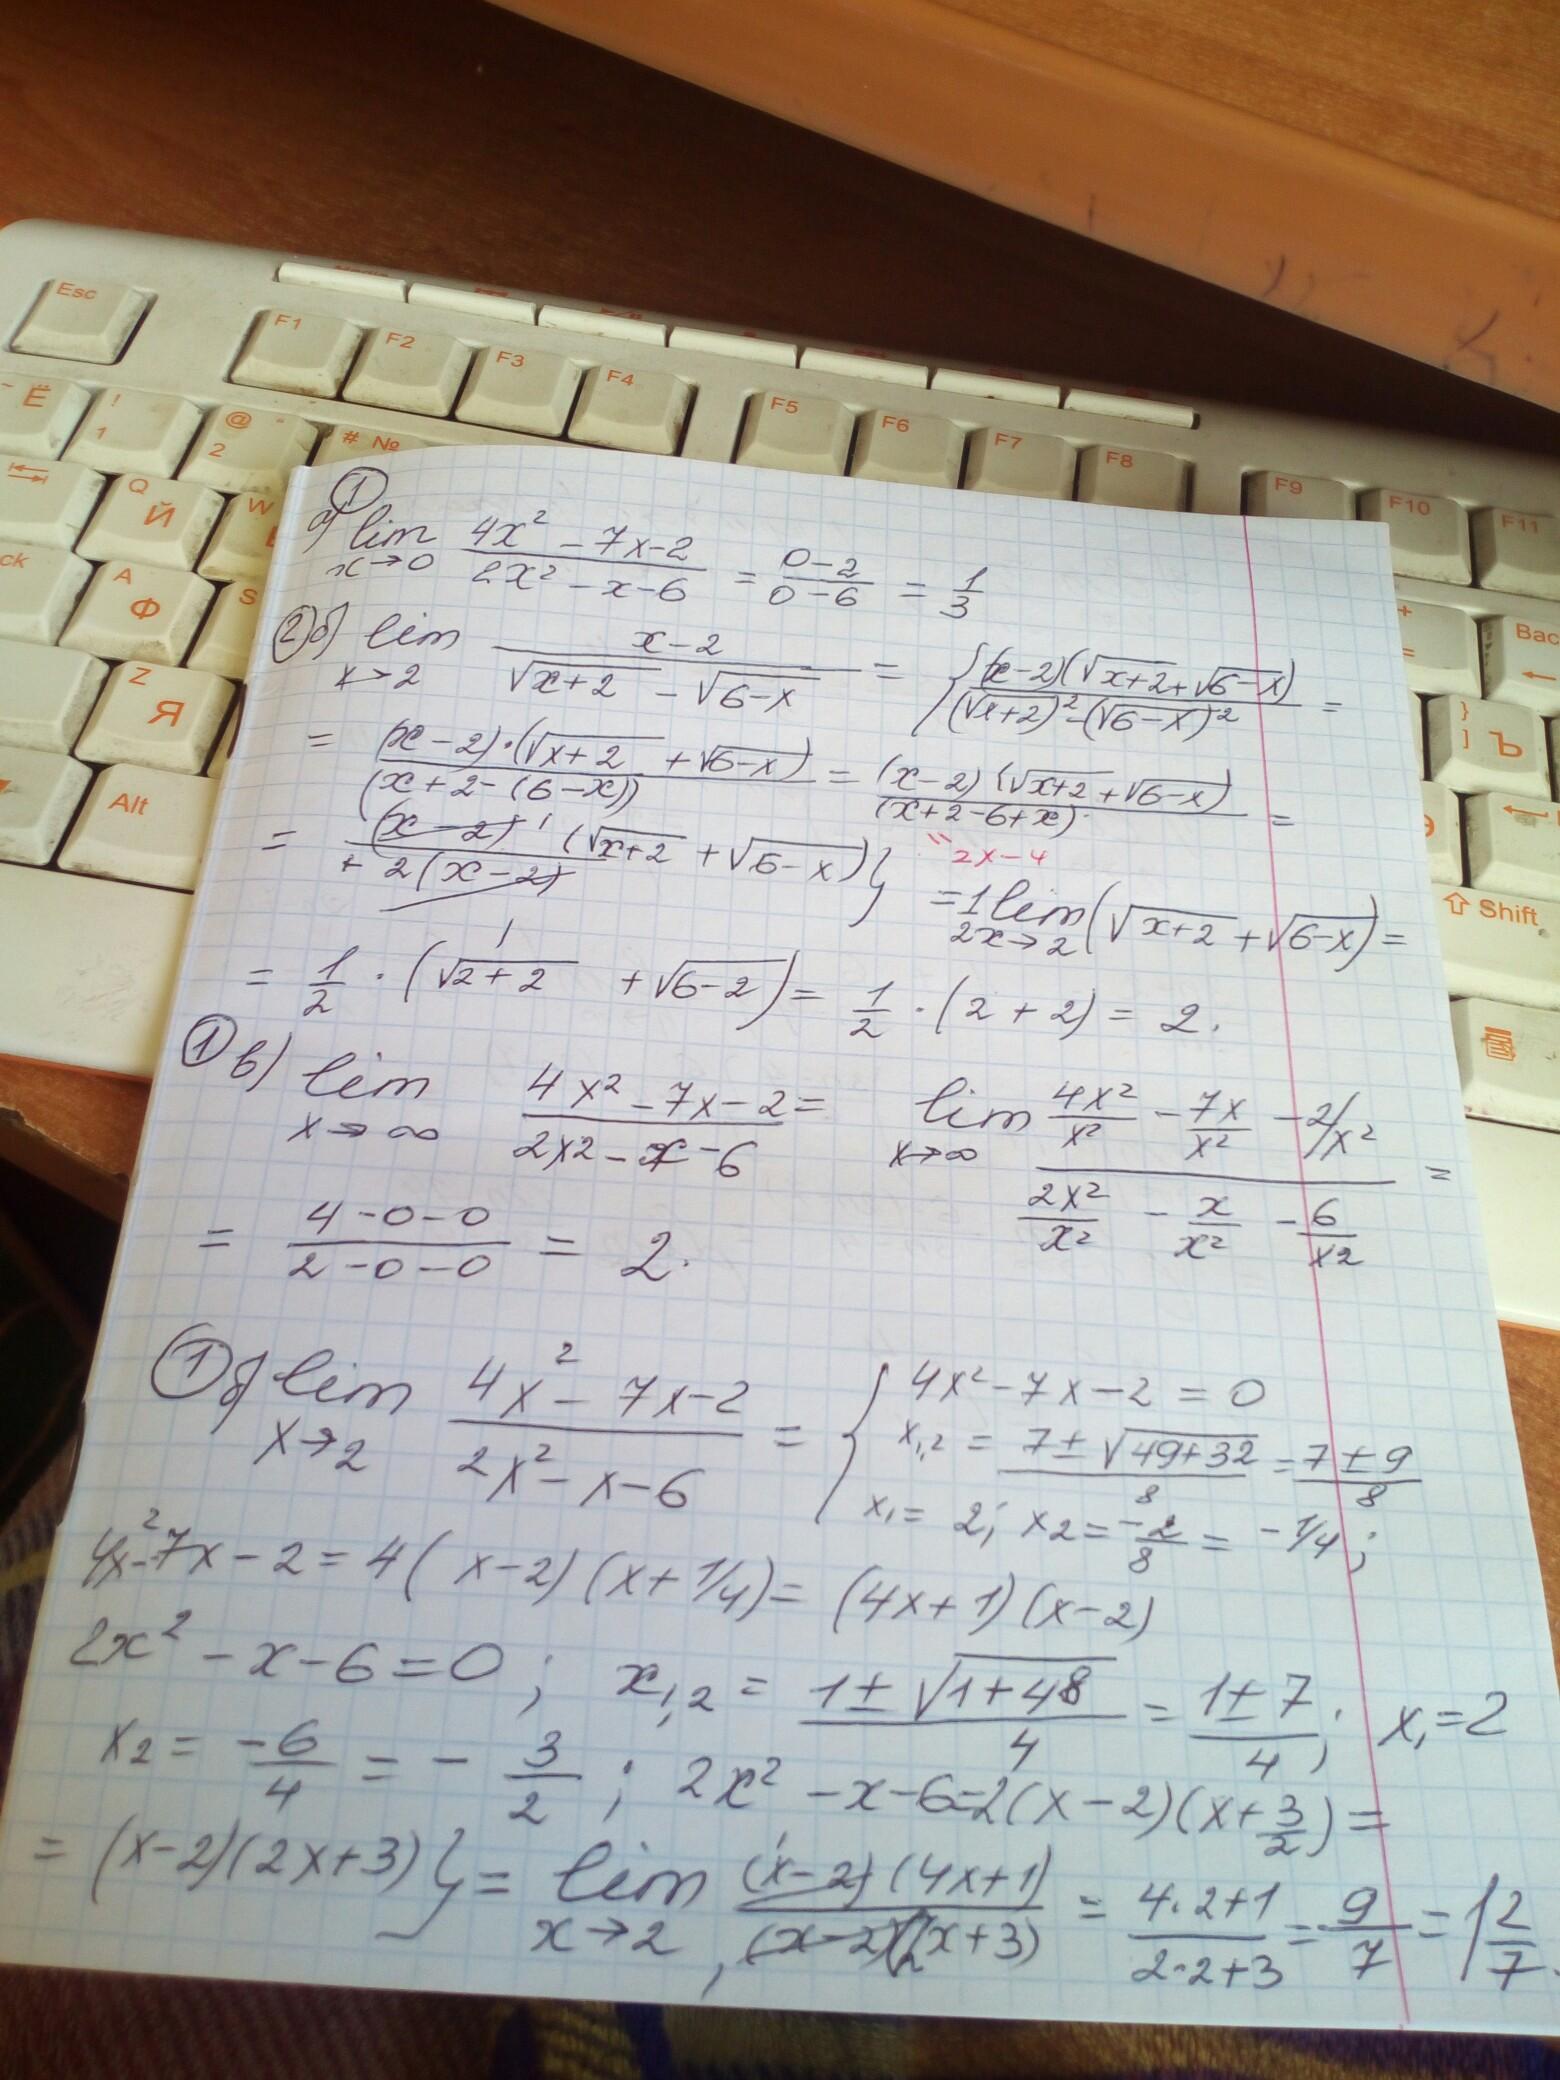 Esc
F1 F2 F3 F4 F5 F6 F7 F8 F9 F10 F11
~ Ё ! 1 @ " 2 # №
Q Й W
A Ф S
Z Я
Alt
+ =
Bac
} ] Ъ
Э
⇧ Shift
①
а) lim x→0 (4x² - 7x - 2)/(2x² - x - 6) = (0 - 2)/(0 - 6) = 1/3
② б) lim x→2 (x - 2)/(√x+2 - √6-x) = { (x-2)(√x+2 + √6-x)/((√x+2)² - (√6-x)²) =
= (x-2)·(√x+2 + √6-x)/(x+2-(6-x)) = (x-2)(√x+2 + √6-x)/(x+2-6+x) =
" 2x-4
= (x-2) 1 (√x+2 + √6-x)/2(x-2) } = 1/2 lim x→2 (√x+2 + √6-x) =
= 1/2 · (√2+2 + √6-2) = 1/2 · (2 + 2) = 2.
① в) lim x→∞ (4x² - 7x - 2)/(2x2 - x - 6) = lim x→∞ (4x²/x² - 7x/x² - 2/x²)/(2x²/x² - x/x² - 6/x2) =
= (4-0-0)/(2-0-0) = 2.
① б) lim x→2 (4x² - 7x - 2)/(2x² - x - 6) = { 4x² - 7x - 2 = 0
x1,2 = (7 ± √49+32)/8 = (7 ± 9)/8
x1 = 2; x2 = -2/8 = -1/4;
4x² - 7x - 2 = 4(x-2)(x+1/4) = (4x+1)(x-2)
2x² - x - 6 = 0; x1,2 = (1 ± √1+48)/4 = (1 ± 7)/4; x1 = 2
x2 = -6/4 = -3/2; 2x² - x - 6 = 2(x-2)(x+3/2) =
= (x-2)(2x+3) } = lim x→2 (x-2)(4x+1)/(x-2)(2x+3) = (4·2+1)/(2·2+3) = 9/7 = 1 2/7.